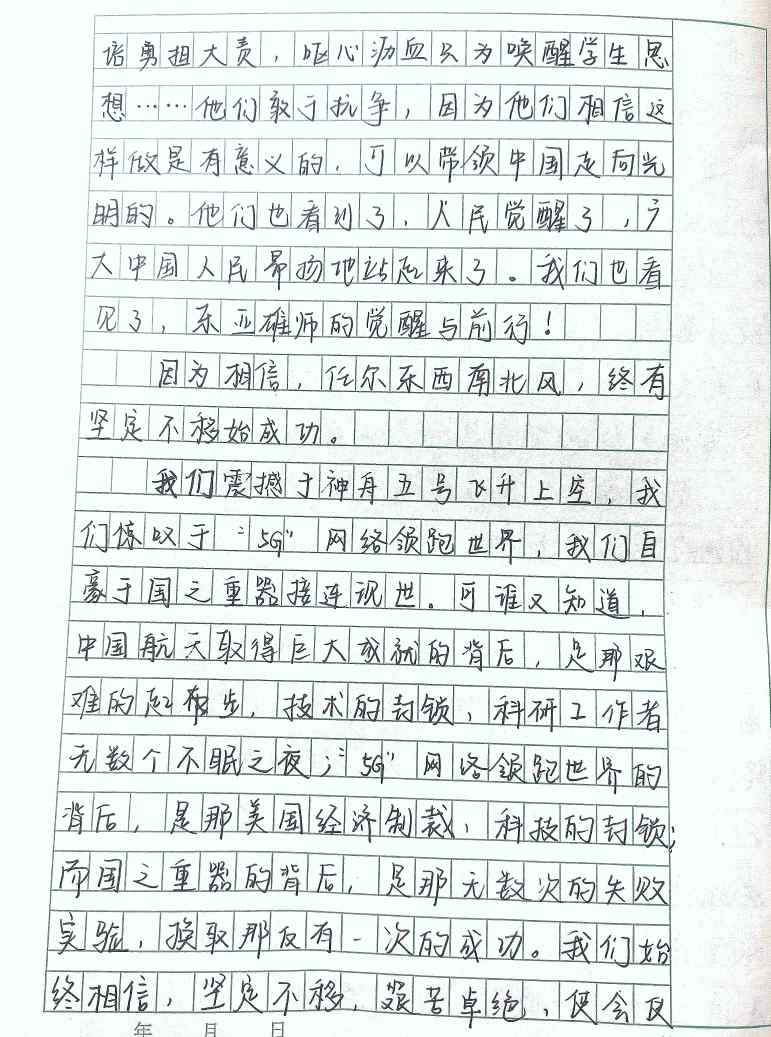 培勇担大责，呕心沥血只为唤醒学生思
想……他们敢于抗争，因为他们相信这
样做是有意义的，可以带领中国走向光
明的。他们也看到了，人民觉醒了，广
大中国人民昂扬地站起来了。我们也看
见了，东亚雄师的觉醒与前行！
因为相信，任尔东西南北风，终有
坚定不移始成功。
我们震撼于神舟五号飞升上空，我
们惊叹于“5G”网络领跑世界，我们自
豪于国之重器接连现世。可谁又知道，
中国航天取得巨大成就的背后，是那艰
难的起步，技术的封锁，科研工作者
无数个不眠之夜；“5G”网络领跑世界的
背后，是那美国经济制裁，科技的封锁；
而国之重器的背后，是那无数次的失败
实验，换取那仅有一次的成功。我们始
终相信，坚定不移，艰苦卓绝，便会
年 月 日